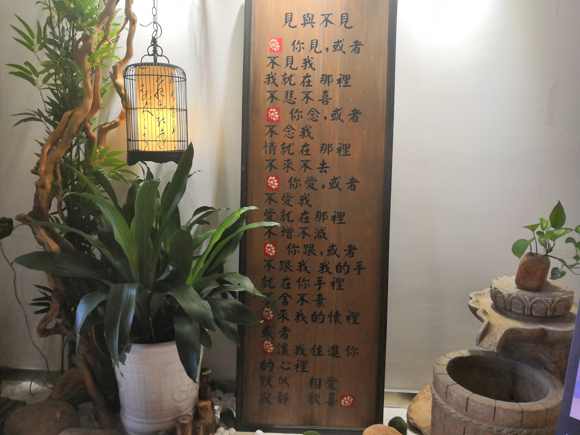 見與不見
你見,或者
不見我
我就在那裡
不悲不喜
你念,或者
不念我
情就在那裡
不來不去
你愛,或者
不愛我
愛就在那裡
不增不減
你跟,或者
不跟我 我的手
就在你手裡
不舍不棄
來我的懷裡
或者
讓我住進你
的心裡
默然 相愛
寂靜 歡喜